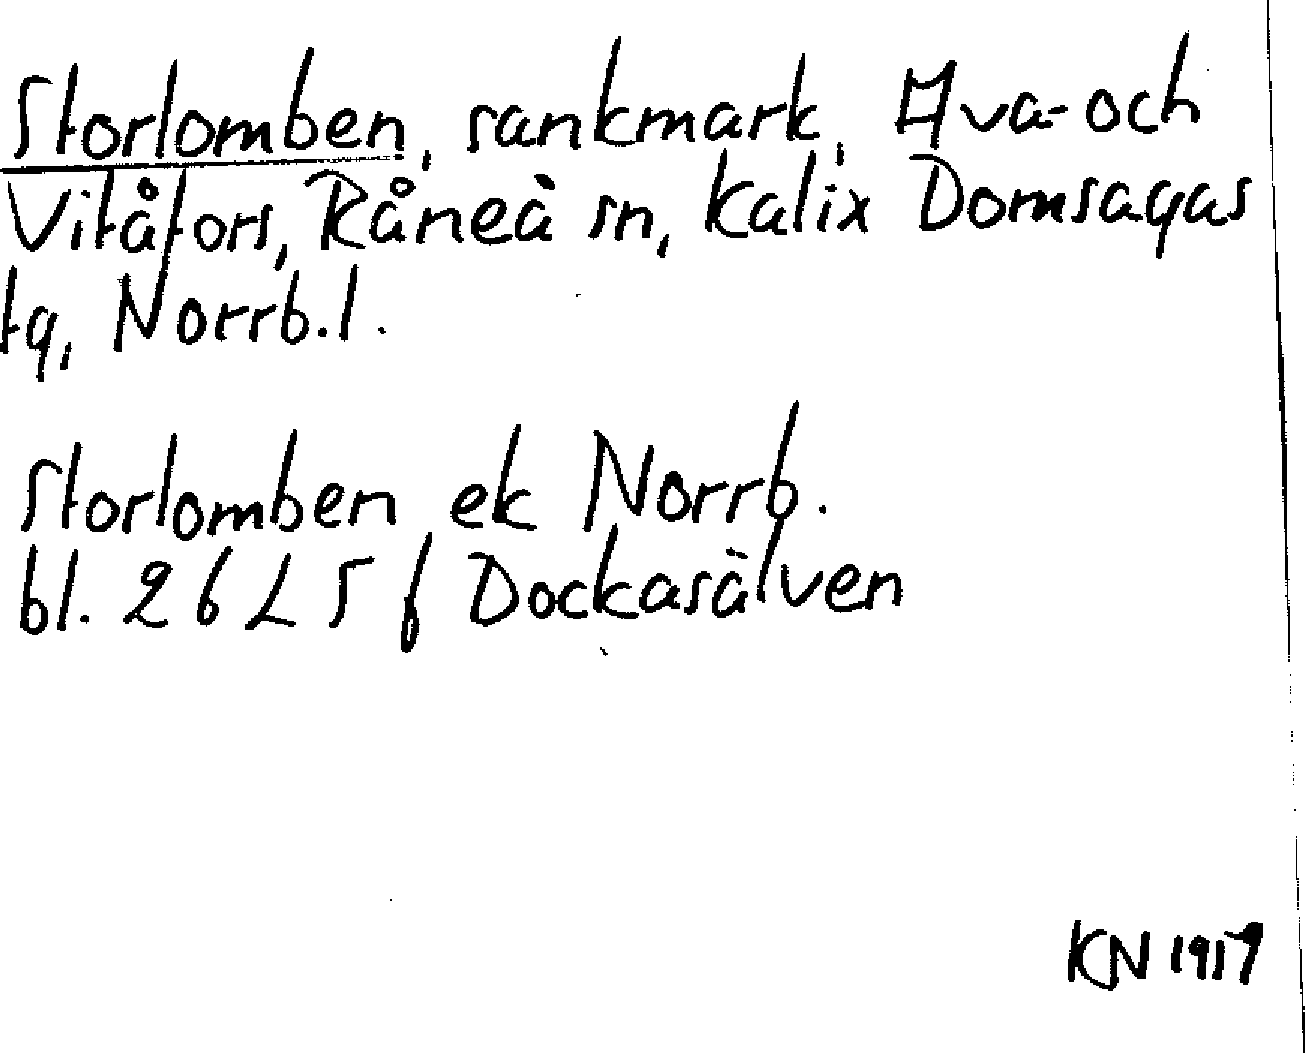 Storlomben, sankmark, Ava- och
Vitåfors, Råneå sn, Kalix Domsagas
tg, Norrb.l.
Storlomben ek Norrb.
bl. 26 L 5 f Dockasälven
KN 1917